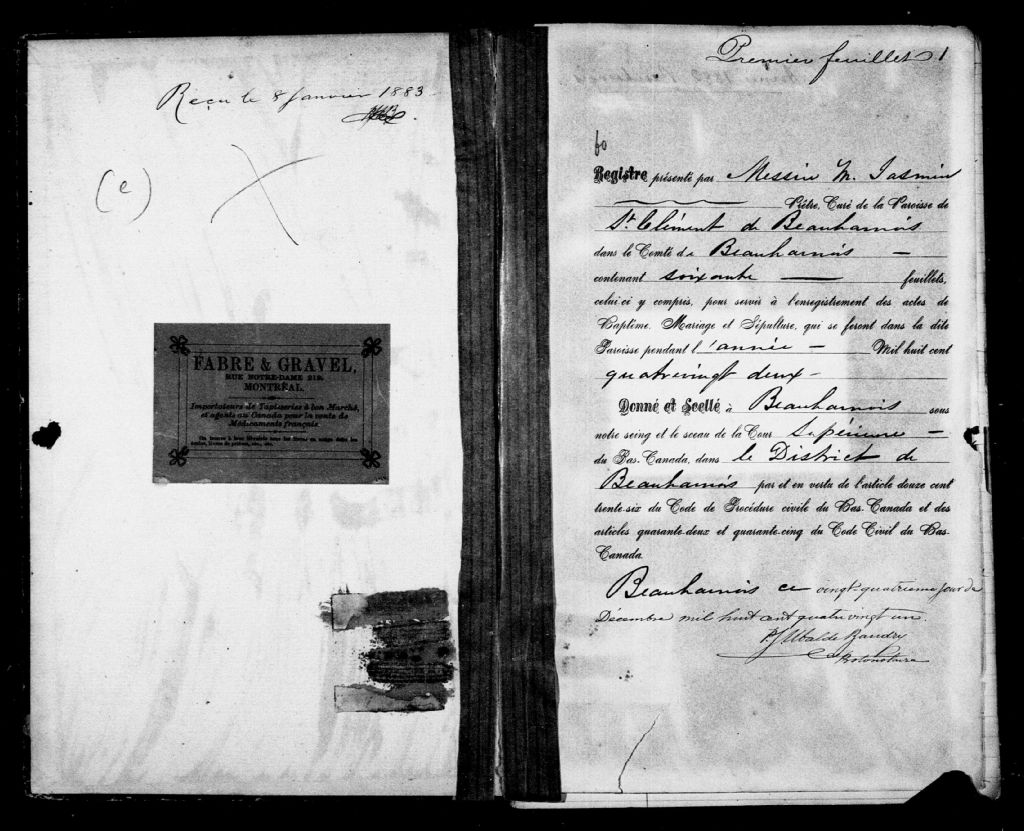 Reçu le 8 Janvier 1883
(e)
FABRE & GRAVEL,
RUE NOTRE-DAME 219,
MONTRÉAL.
Importateurs de Tapisseries à bon Marché,
et agents au Canada pour la vente de
Médicaments français.
On trouve à leur librairie tous les livres en usage dans les
écoles, livres de prières, etc., etc.
Premier feuillet 1
60
Registre présenté par Messire M. Jasmin
Prêtre, Curé de la Paroisse de
St. Clément de Beauharnois
dans le Comté de Beauharnois —
contenant soixante — feuillets,
celui-ci y compris, pour servir à l'enregistrement des actes de
Baptême, Mariage et Sépulture, qui se feront dans la dite
Paroisse pendant l'année — Mil huit cent
quatrevingt deux -
Donné et Scellé à Beauharnois sous
notre seing et le sceau de la Cour Supérieure —
du Bas-Canada, dans le District de
Beauharnois par et en vertu de l'article douze cent
trente-six du Code de Procédure civile du Bas-Canada et des
articles quarante-deux et quarante-cinq du Code Civil du Bas-
Canada.
Beauharnois ce vingt-quatrieme jour de
Décembre mil huit cent quatre vingt un.
P. J. Ubalde Baudry
Protonotaire